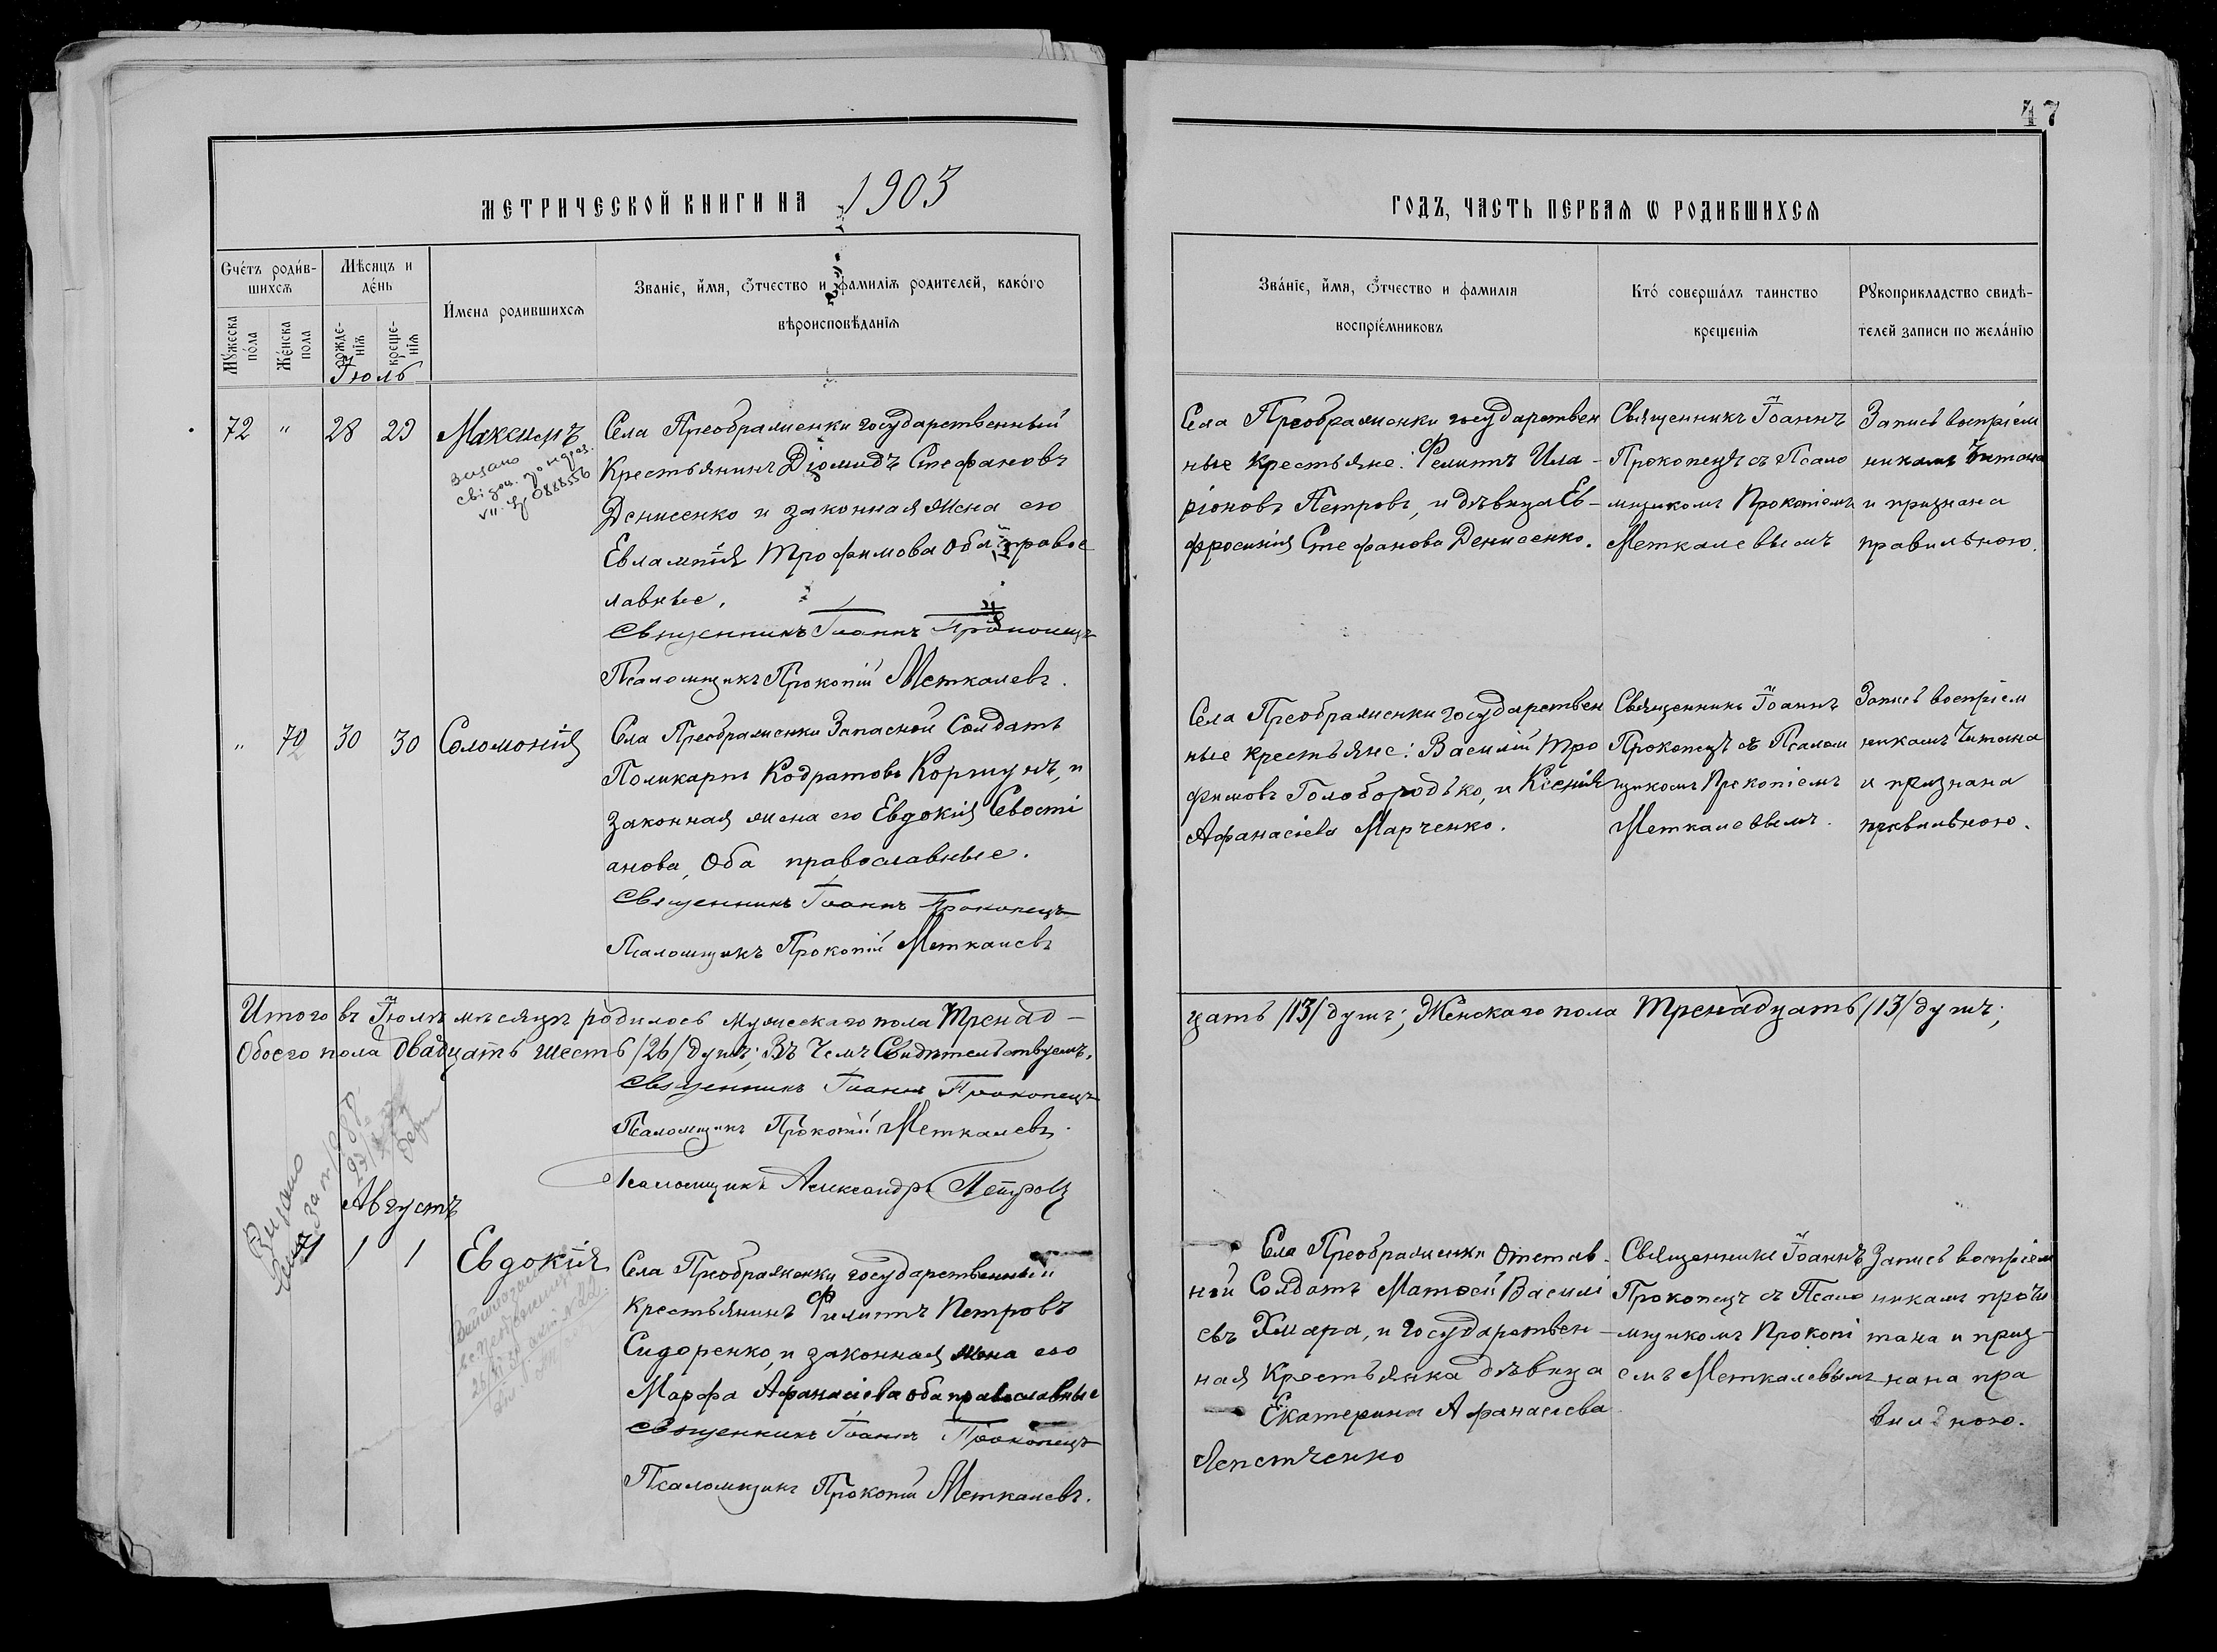 47
МЕТРИЧЕСКОЙ КНИГИ НА 1903
ГОДЪ, ЧАСТЬ ПЕРВАЯ Ѡ РОДИВШИХСЯ
Счетъ родив-
шихся
Мѣсяцъ и
день
Имена родившихся
Званіе, имя, ѿчество и фамилія родителей, какого
вѣроисповѣданія
Мужеска
пола
Женска
пола
рожде-
нія
креще-
нія
Званіе, имя, ѿчество и фамилія
воспріемниковъ
Кто совершалъ таинство
крещенія
Рукоприкладство свидѣ-
телей записи по желанію
Іюль
72 " 28 29 Максимъ
Видано
0888556
Села Преображенки государственный
Крестьянинъ Діомидъ Стефановъ
Денисенко и законная жена его
Евлампія Трофимова Оба правос
лавные.
Священникъ Іоаннъ Прокопецъ
Псаломщикъ Прокопій Меткалевъ.
Села Преображенки государствен
ные крестьяне: Филиппъ Ила-
ріоновъ Петровъ, и дѣвица Ев-
фросинія Стефанова Денисенко.
Священникъ Іоаннъ
Прокопецъ съ Псало
мщикомъ Прокопіемъ
Меткалевымъ
Запись воспріем
никамъ Читана
и признана
правильною.
" 70 30 30 Соломонія
Села Преображенки Запасной Солдатъ
Поликарпъ Кодратовъ Коршунъ, и
законная жена его Евдокія Севасті
анова, Оба православные.
Священникъ Іоаннъ Прокопецъ
Псаломщикъ Прокопій Меткалевъ
Села Преображенки государствен
ные крестьяне: Василій Тро
фимовъ Голобородько, и Ксенія
Афанасіева Марченко.
Священникъ Іоаннъ
Прокопецъ съ Псалом
щикомъ Прокопіемъ
Меткалевымъ.
Запись воспріем
никамъ Читана
и признана
правильною.
Итого въ Іюлѣ мѣсяцѣ родилось мужескаго пола Тренад-
цать /13/ душъ; Женскаго пола Тренадцать /13/ душъ;
Обоего пола двадцать шесть /26/ душъ; Въ чемъ Свидѣтельствуемъ.
Священникъ Іоаннъ Прокопецъ
Псаломщикъ Прокопій Меткалевъ.
Псаломщикъ Александръ Петровъ
Видано
Августъ
71 1 1 Евдокія
Села Преображенки государственный
крестьянинъ Филиппъ Петровъ
Сидоренко, и законная жена его
Марфа Афанасіева оба православные
Священникъ Іоаннъ Прокопецъ
Псаломщикъ Прокопій Меткалевъ.
Села Преображенки Отстав-
ной Солдатъ Матфей Василі
евъ Хмара, и Государствен-
ная Крестьянка дѣвица
Екатерина Афанасіева
Лепетченко
Священникъ Іоаннъ
Прокопецъ съ Псало
мщикомъ Прокопі
емъ Меткалевымъ
Запись воспріем
никамъ прочи
тана и приз-
нана пра
вильною.